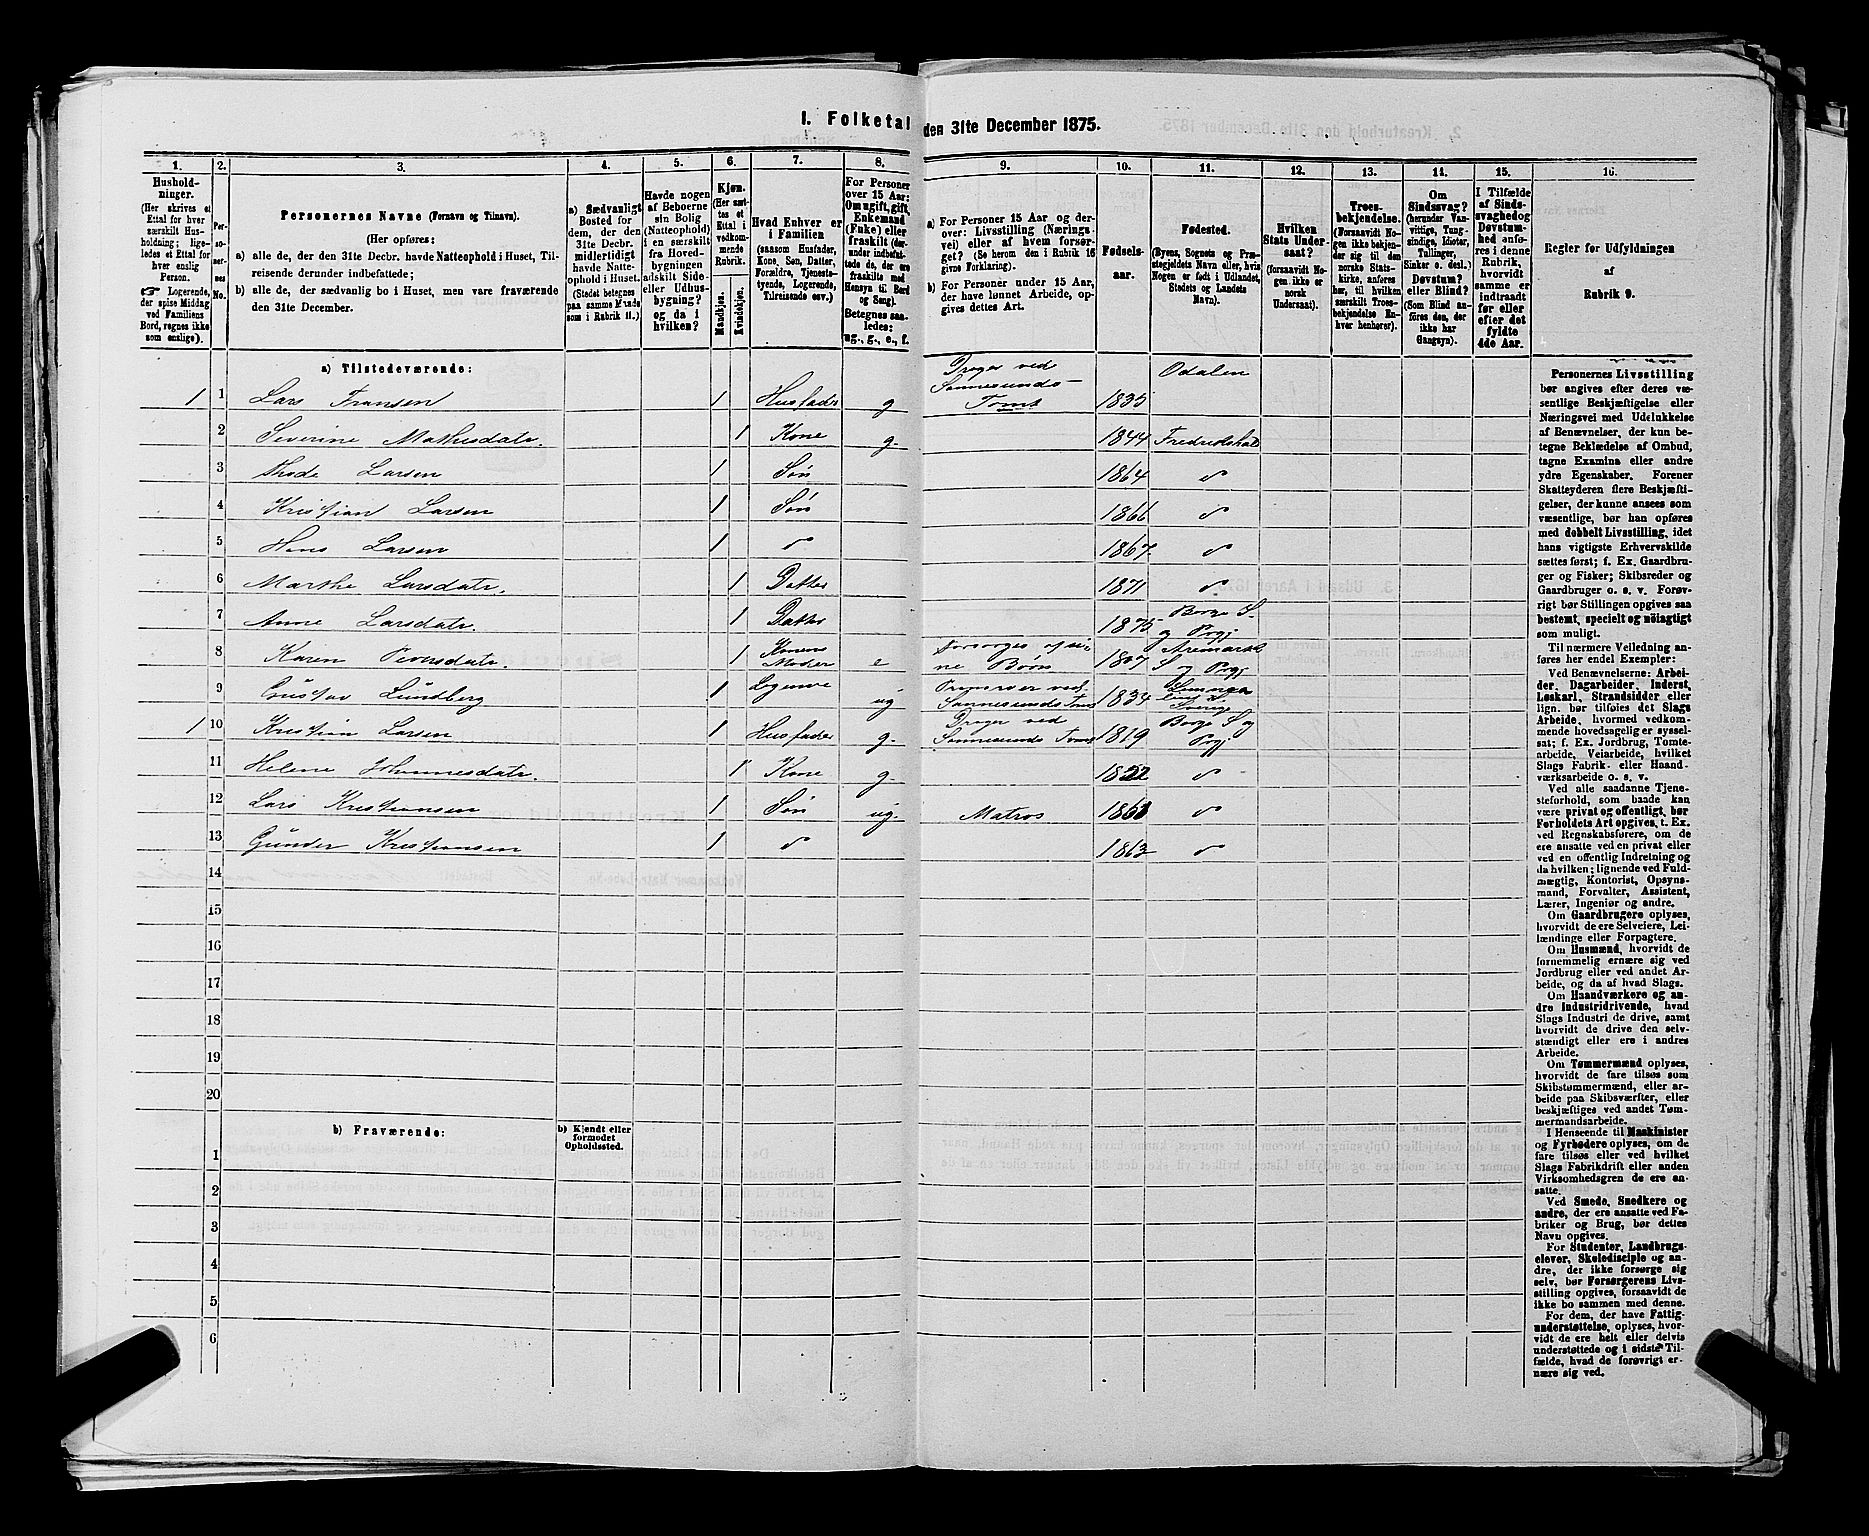 I. Folketal den 31te December 1875.
1. 2. 3. 4. 5. 6. 7. 8. 9. 10. 11. 12. 13. 14. 15. 16.
Hushold-
ninger.
(Her skrives et
Ettal for hver
særskilt Hus-
holdning; lige-
ledes et Ettal for
hver enslig
Person.
☞ Logerende,
der spise Middag
ved Familiens
Bord, regnes ikke
som enslige).
Per-
so-
ner-
nes
No.
Personernes Navne (Fornavn og Tilnavn).
(Her opføres:
a) alle de, der den 31te Decbr. havde Natteophold i Huset, Til-
reisende derunder indbefattede;
b) alle de, der sædvanlig bo i Huset, men vare fraværende
den 31te December.
a) Sædvanligt
Bosted for
dem, der den
31te Decbr.
midlertidigt
havde Natte-
ophold i Huset.
(Stedet betegnes
paa samme Maade
som i Rubrik 11.)
Havde nogen
af Beboerne
sin Bolig
(Natteophold)
i en særskilt
fra Hoved-
bygningen
adskilt Side-
eller Udhus-
bygning?
og da i
hvilken?
Kjøn.
(Her sæt-
tes et
Ettal i
vedkom-
mende
Rubrik.
Mandkjøn.
Kvindekjøn.
Hvad Enhver er
i Familien
(saasom Husfader,
Kone, Søn, Datter,
Forældre, Tjeneste-
tyende, Logerende,
Tilreisende osv.)
For Personer
over 15 Aar:
Om ugift, gift,
Enkemand
(Enke) eller
fraskilt (der-
under indbefat-
tede de, der ere
fraskilte med
Hensyn til Bord
og Seng).
Betegnes saa-
ledes:
ug., g., e., f.
a) For Personer 15 Aar og der-
over: Livsstilling (Nærings-
vei) eller af hvem forsør-
get? (Se herom den i Rubrik 16
givne Forklaring).
b) For Personer under 15 Aar,
der have lønnet Arbeide, op-
gives dettes Art.
Fødsels-
aar.
Fødested.
(Byens, Sognets og Præ-
stegjeldets Navn eller, hvis
Nogen er født i Udlandet,
Stedets og Landets
Navn).
Hvilken
Stats Under-
saat?
(forsaavidt No-
gen ikke er
norsk
Undersaat).
Troes-
bekjendelse.
(Forsaavidt No-
gen ikke bekjen-
der sig til den
norske Stats-
kirke, anføres
her, til hvilken
særskilt Troes-
bekjendelse En-
hver henhører).
Om
Sindssvag?
(herunder Van-
vittige, Tung-
sindige, Idioter,
Tullinger,
Sinker o. desl.)
Døvstum?
eller Blind?
(Som Blind an-
føres den, der
ikke har
Gangsyn).
I Tilfælde
af Sinds-
svaghed og
Døvstum-
hed anfø-
res i denne
Rubrik,
hvorvidt
samme er
indtraadt
før eller
efter det
fyldte
4de Aar.
Regler for Udfyldningen
af
Rubrik 9.
a) Tilstedeværende:
1 1 Lars Fransen 1 Husfader g Drager ved
Sannesunds-
Tomt 1835 Odalen
2 Severine Mathisdatr. 1 Kone g. 1844 Fredrikshald
3 Larsen 1 Søn 1864 "
4 Kristian Larsen 1 Søn 1866 "
5 Hans Larsen 1 " 1867. "
6 Marthe Larsdatr. 1 Datter 1871 "
7 Anne Larsdatr. 1 Datter 1875 Borge S.
og Prgj
8 Karen 1 Konens
Moder e forsørges af si-
ne Børn 1807 Aremarks
S og Prgj
9 Gustav Lundberg 1 Logerende ug ved
Sannesunds Tomt 1834 Sverige
1 10 Kristian Larsen 1 Husfader g. Drager ved
Sannesunds Tomt 1819 Borge S og
Prgj
11 Helene Johannesdatr. 1 Kone g. 1822 "
12 Lars Kristiansen 1 Søn ug. Matros "
13 Gunder Kristiansen 1 " 1863 "
14
15
16
17
18
19
20
b) Fraværende:
b) Kjendt eller
formodet
Opholdssted.
1
2
3
4
5
6
Personernes Livsstilling
bør angives efter deres væ-
sentlige Beskjæftigelse eller
Næringsvei med Udelukkelse
af Benævnelser, der kun be-
tegne Beklædelse af Ombud,
tagne Examina eller andre
ydre Egenskaber. Forener
Skatteyderen flere Beskjæfti-
gelser, der kunne ansees som
væsentlige, bør han opføres
med dobbelt Livsstilling, idet
hans vigtigste Erhvervskilde
sættes først; f. Ex. Gaardbru-
ger og Fisker; Skibsreder og
Gaardbruger o. s. v. Forøv-
rigt bør Stillingen opgives saa
bestemt, specielt og nöiagtigt
som muligt.
Til nærmere Veiledning an-
føres her endel Exempler:
Ved Benævnelserne: Arbei-
der, Dagarbeider, Inderst,
Løskarl, Strandsidder eller
lign. bør tilføies det Slags
Arbeide, hvormed vedkom-
mende hovedsagelig er syssel-
sat; f. Ex. Jordbrug, Tomte-
arbeide, Veiarbeide, hvilket
Slags Fabrik- eller Haand-
værksarbeide o. s. v.
Ved alle saadanne Tjene-
steforhold, som baade kan
være privat og offentligt, bør
Forholdets Art opgives, t. Ex.
ved Regnskabsførere, om de
ere ansatte ved en privat eller
ved en offentlig Indretning og
da hvilken; lignende ved Fuld-
mægtig, Kontorist, Opsyns-
mand, Forvalter, Assistent,
Lærer, Ingeniør og andre.
Om Gaardbrugere oplyses,
hvorvidt de ere Selveiere, Lei-
lændinge eller Forpagtere.
Om Husmænd, hvorvidt de
fornemmelig ernære sig ved
Jordbrug eller ved andet Ar-
beide, og da af hvad Slags.
Om Haandværkere og an-
dre Industridrivende, hvad
Slags Industri de drive, samt
hvorvidt de drive den selv-
stændigt eller ere i andres
Arbeide.
Om Tømmermænd oplyses,
hvorvidt de fare tilsøs som
Skibstømmermænd, eller ar-
beide paa Skibsværfter, eller
beskjæftiges ved andet Tøm-
mermandsarbeide.
I Henseende til Maskinister
og Fyrbødere oplyses, om de
fare tilsøs eller ved hvilket
Slags Fabrikdrift eller anden
Virksomhedsgren de ere an-
satte.
Ved Smede, Snedkere og
andre, der ere ansatte ved Fa-
briker og Brug, bør dettes
Navn opgives.
For Studenter, Landbrugs-
elever, Skoledisciple og an-
dre, der ikke forsørge sig
selv, bør Forsørgerens Livs-
stilling opgives, forsaavidt de
ikke bo sammen med denne.
For dem, der have Fattig-
understøttelse, oplyses, hvor-
vidt de ere helt eller delvis
understøttede og i sidste Til-
fælde, hvad de forøvrigt er-
nære sig ved.